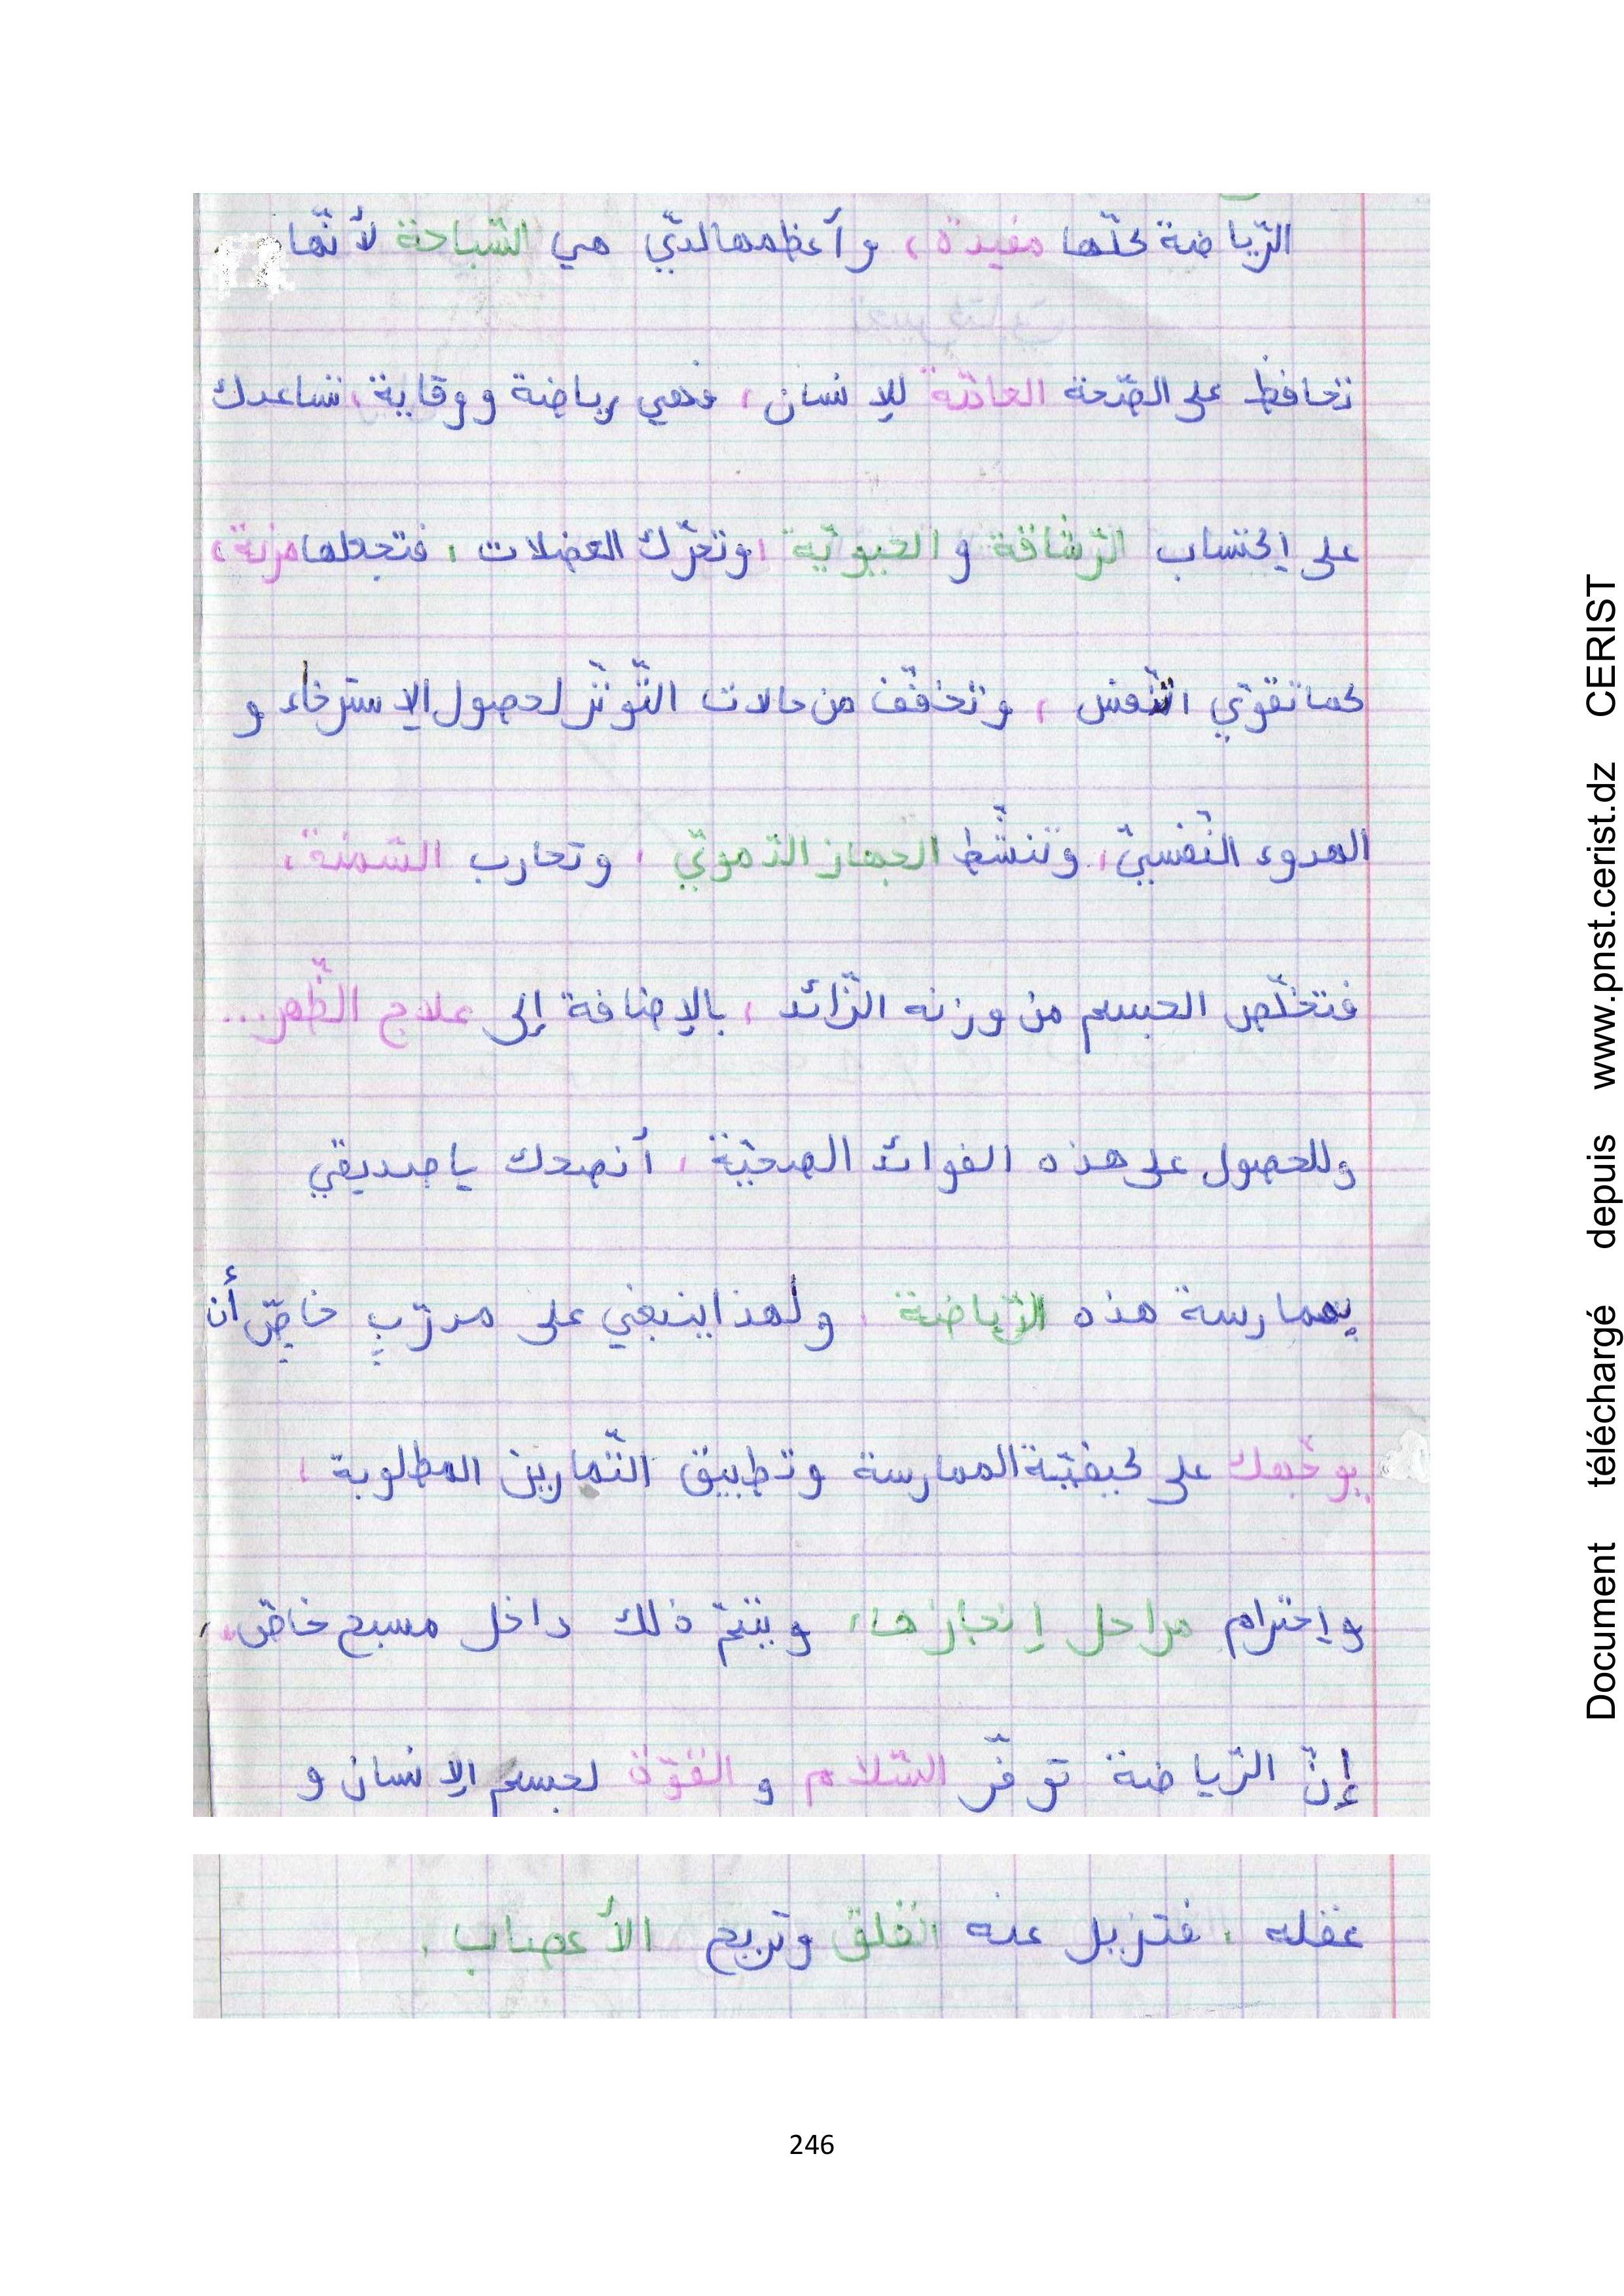 الرّياضة كلّها مفيدة، وأعظمها لديّ هي السّباحة لأنّها
تحافظ على الصّحة العامّة للإنسان، فهي رياضة ووقاية، تساعدك
على إكتساب الرّشاقة و الحيويّة، وتحرّك العضلات، فتجعلها مرنة،
كما تقوّي النّفس، وتخفّف من حالات التّوتّر لحصول الإسترخاء و
الهدوء النّفسيّ، وتنشّط الجهاز الدّمويّ، وتحارب السّمنة،
فتخلّص الجسم من وزنه الزّائد، بالإضافة إلى علاج الظّهر...
وللحصول على هذه الفوائد الصحيّة، أنصحك يا صديقي
بممارسة هذه الرّياضة، ولهذا ينبغي على مدرّبٍ خاصٍّ أن
يوجّهك على كيفيّة الممارسة وتطبيق التّمارين المطلوبة،
وإحترام مراحل إنجازها، ويتمّ ذلك داخل مسبح خاصّ،
إنّ الرّياضة توفّر السّلام و القوّة لجسم الإنسان و
عقله، فتزيل عنه القلق وتريح الأعصاب.
246
Document téléchargé depuis www.pnst.cerist.dz CERIST